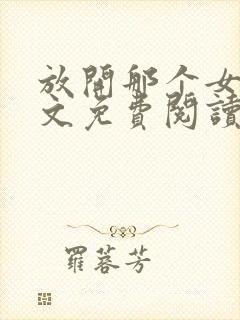 放開那个女
文免費閱讀
羅蓉芳